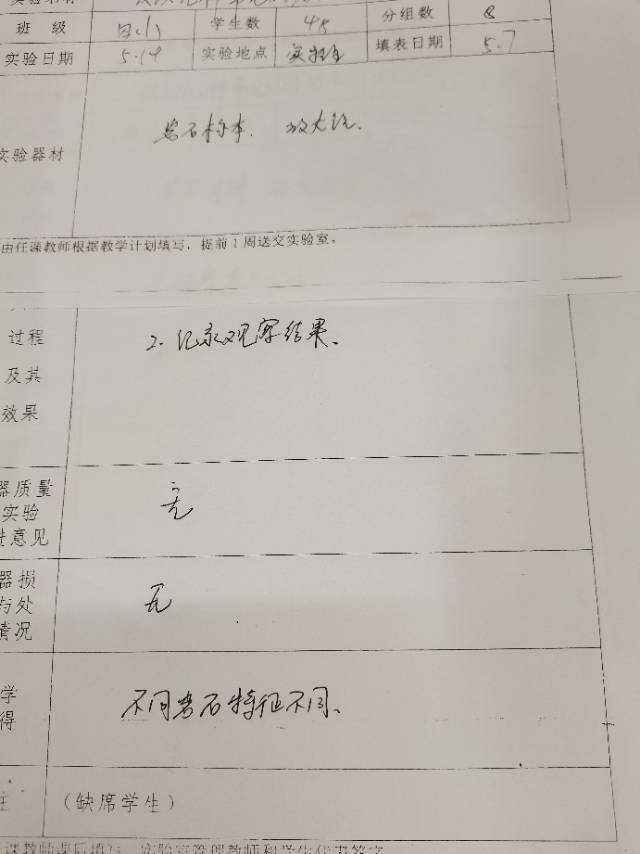 班 级 四(1) 学生数 45 分组数 8
实验日期 5.14 实验地点 实验室 填表日期 5.7
实验器材 岩石标本、放大镜.
由任课教师根据教学计划填写，提前1周送交实验室。
过程
2. 记录观察结果、
及其
效果
器质量
实验 无
进意见
器损
与处 无
情况
学
得 不同岩石特征不同、
注 （缺席学生）
课教师课后填写，实验室管理教师和学生代表签字